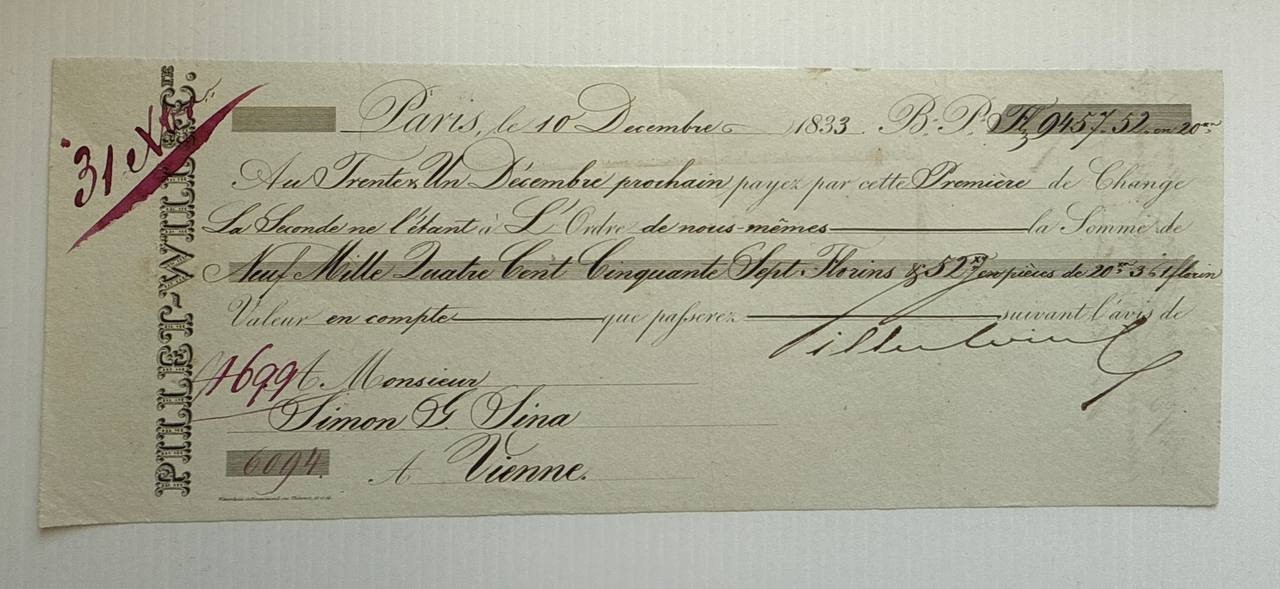 PILLET-WILL & Cie.
Paris, le 10 Decembre 1833. B. P. Fl. 9457.52 en 20ers
Au Trente & Un Décembre prochain payez par cette Première de Change
La Seconde ne l'étant à L'Ordre de nous-mêmes la Somme de
Neuf Mille Quatre Cent Cinquante Sept Florins & 52 xr en pièces de 20xr 3 à 1 florin
Valeur en compte que passerez suivant l'avis de
Pillet Will
1699 A Monsieur
Simon G. Sina
6094 A Vienne.